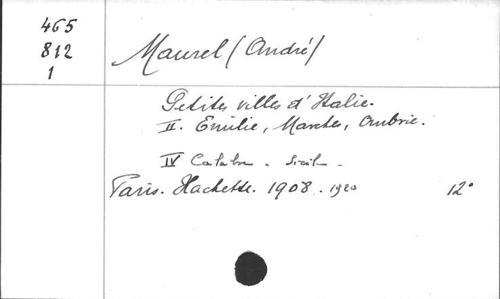 465
812
1
Maurel (André)
Petites villes d'Italie.
II. Emilie, Marches, Ombrie.
IV Calabre - Sicile -
Paris. Hachette. 1908. - 1920 12°